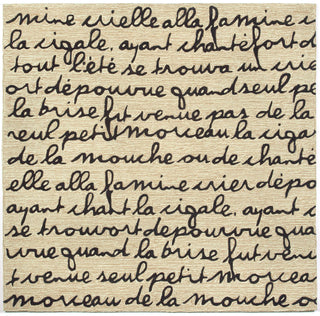 mine crielle alla famine c
la cigale, ayant chanté fort d
tout l'été se trouva un crie
ort dépourvue quand seul pe
la brise fut venue pas de la
reul petit morceau la ciga
de la mouche ou de chanté
elle alla famine crier dépo
ayant chant la cigale, ayant c
se trouvort depourvue qua
vue quand la brise fut ven
t venue seul petit morcea
morceau de la mouche o